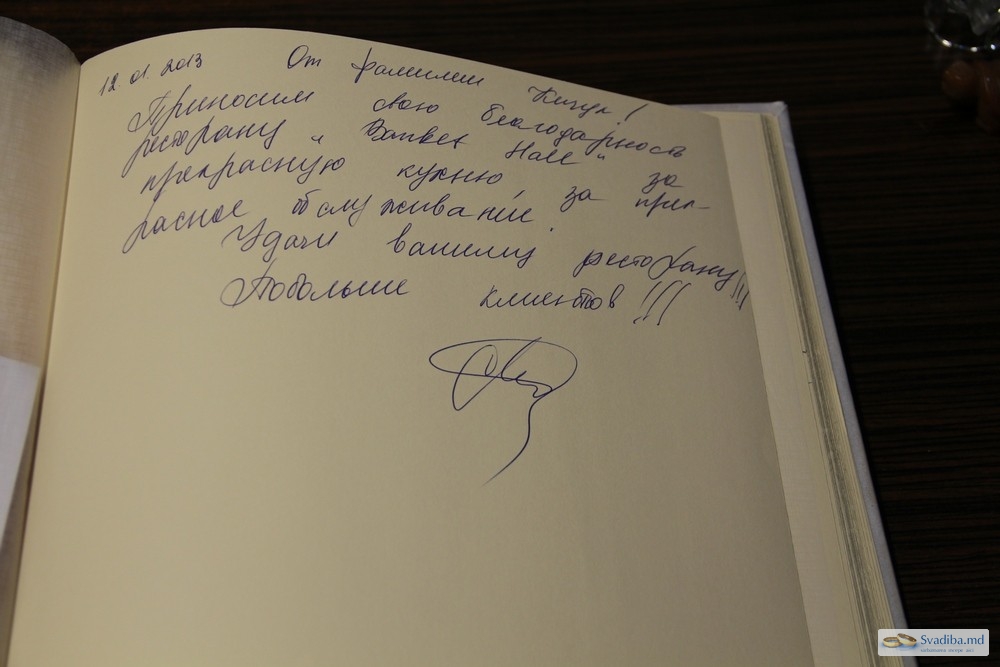 12.01.2013 От фамилии Кичук!
Приносим свою благодарность
ресторану „Banket Hall“ за
прекрасную кухню, за прек-
расное обслуживание.
Удачи вашему ресторану!!!
Побольше клиентов!!!
Svadiba.md